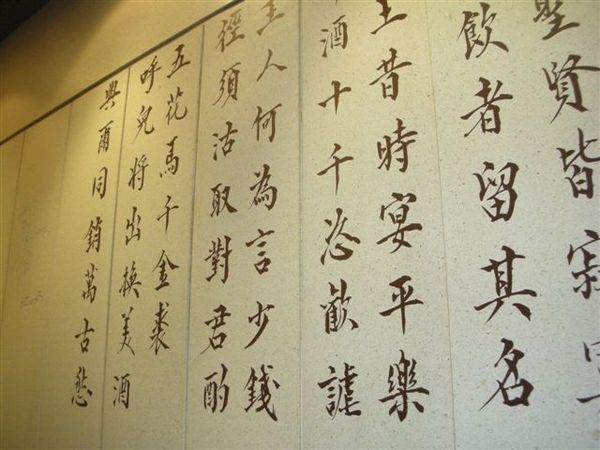 聖賢皆寂
飲者留其名
王昔時宴平樂
酒十千恣歡謔
主人何為言少錢
徑須沽取對君酌
五花馬千金裘
呼兒將出換美酒
與爾同銷萬古愁